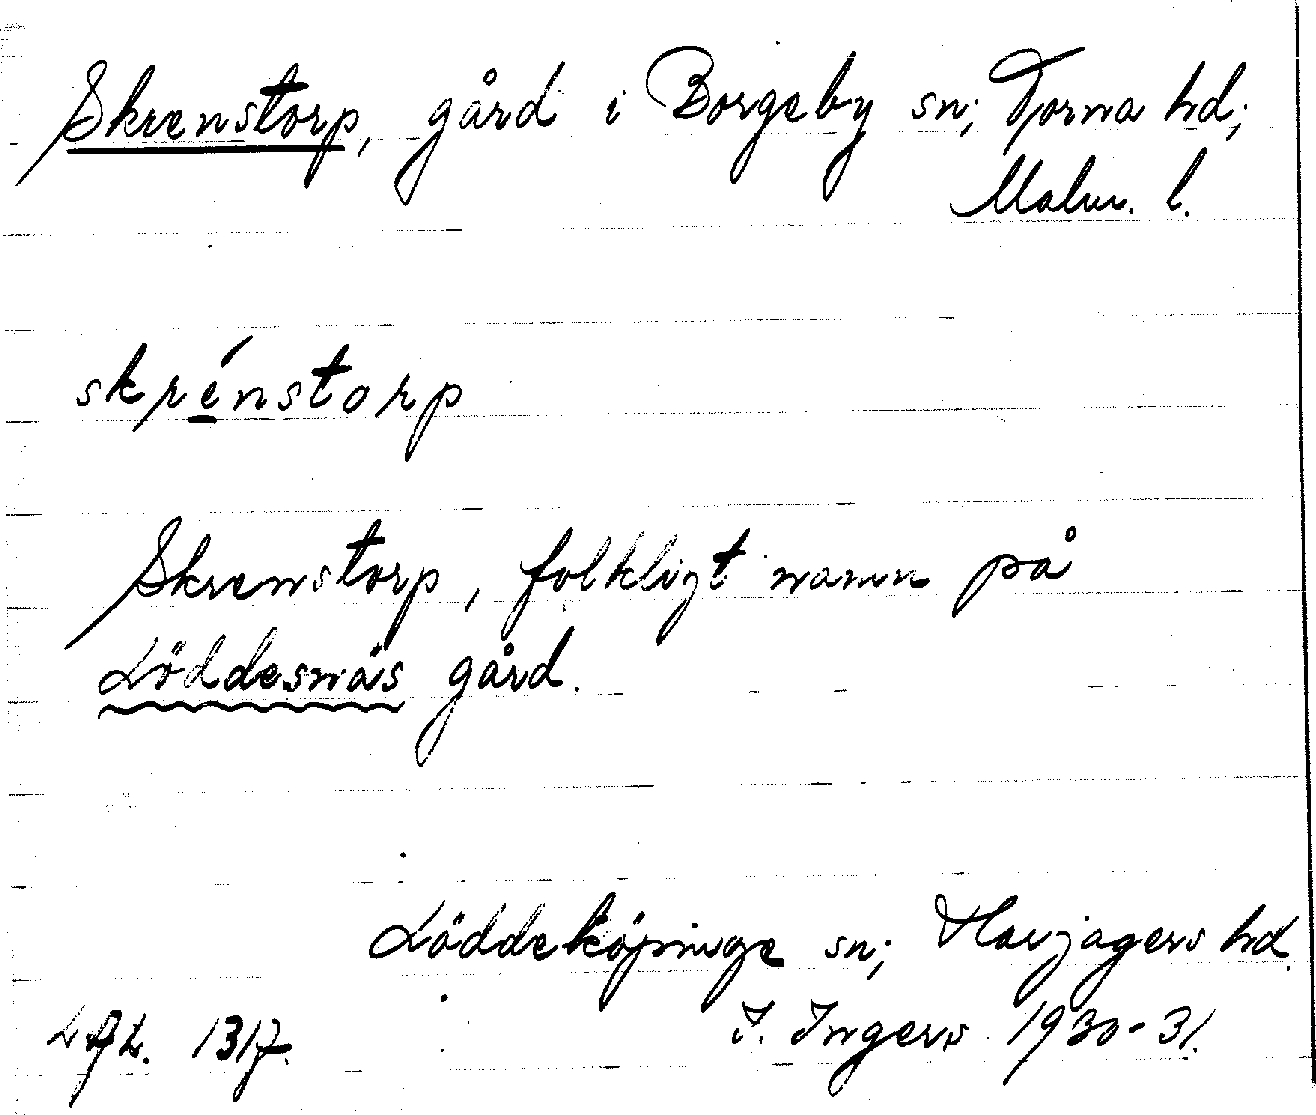 Skrenstorp, gård i Borgeby sn; Torna hd;
Malm. l.
skrénstorp
Skrenstorp, folkligt namn på
Löddesnäs gård.
Löddeköpinge sn; Harjagers hd.
I. Ingers 1930-31.
1317.